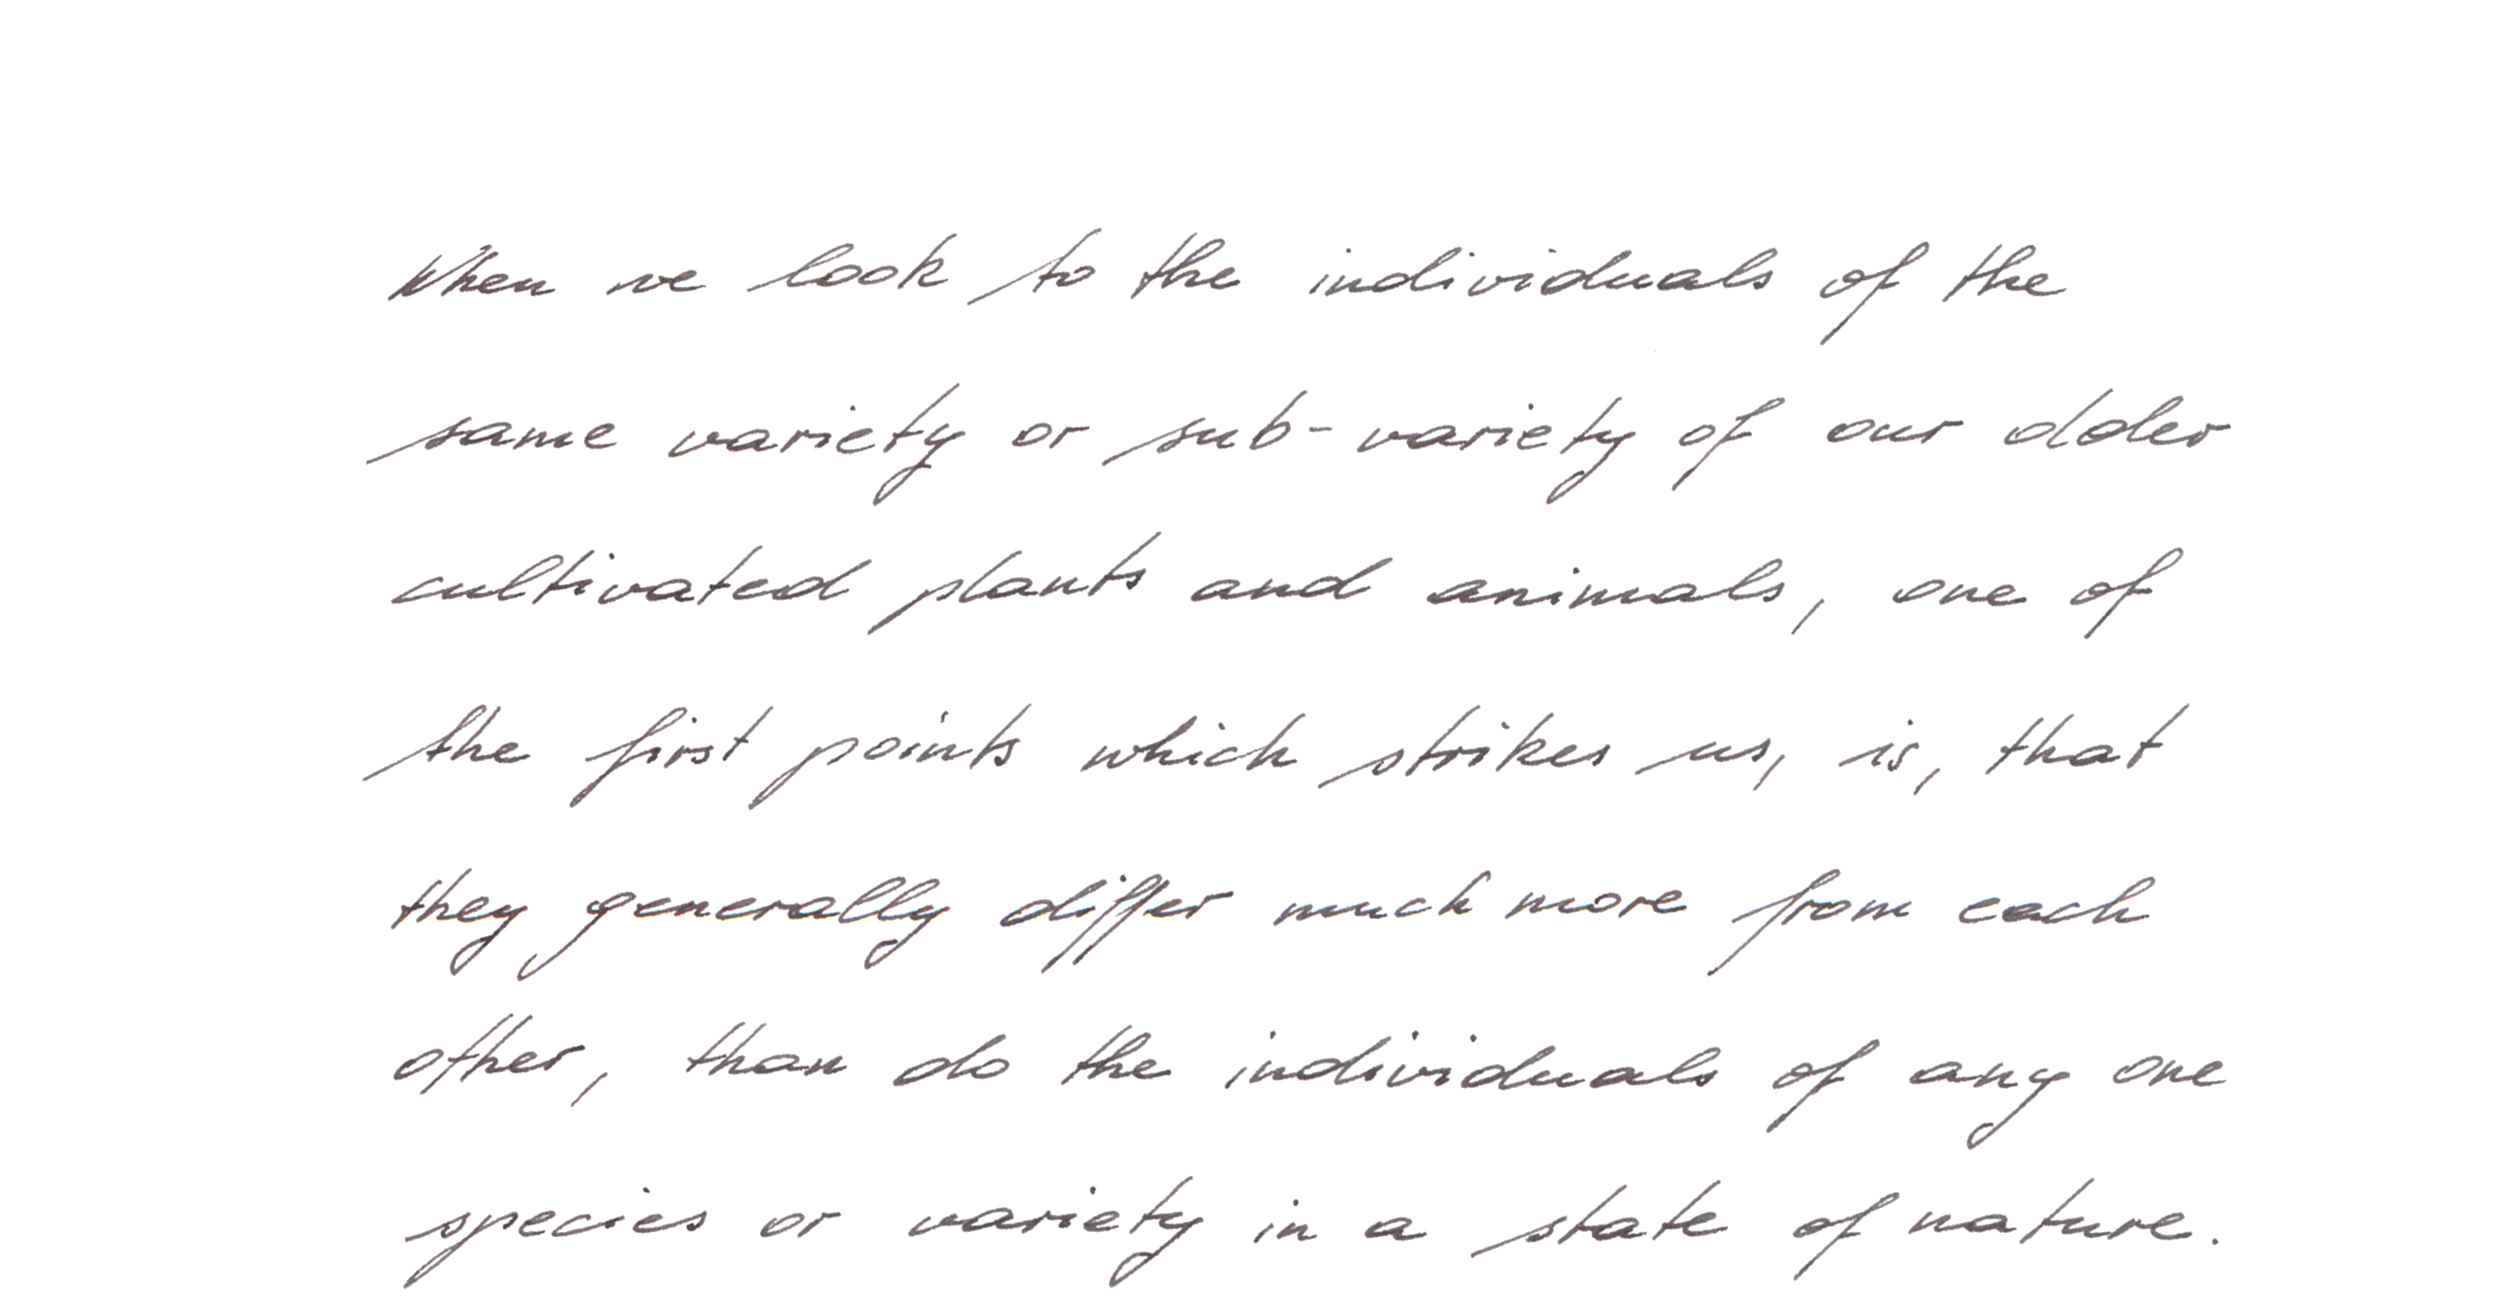 When we look to the individuals of the
same variety or sub-variety of our older
cultivated plants and animals, one of
the first points which strikes us, is, that
they generally differ much more from each
other, than do the individuals of any one
species or variety in a state of nature.